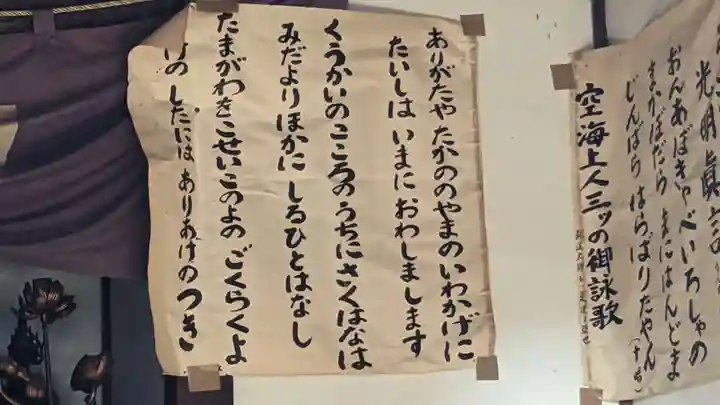 光明真言
おんあぼきゃべいろしゃの
まかぼだら まにはんどま
じんばら はらばりたやうん
空海上人三ッの御詠歌
ありがたやたかののやまのいわかげに
たいしはいまにおわしまします
くうかいのこころのうちにさくはなは
みだよりほかに しるひとはなし
たまがわをこせいこのよのごくらくよ
けのしたには ありあけのつき